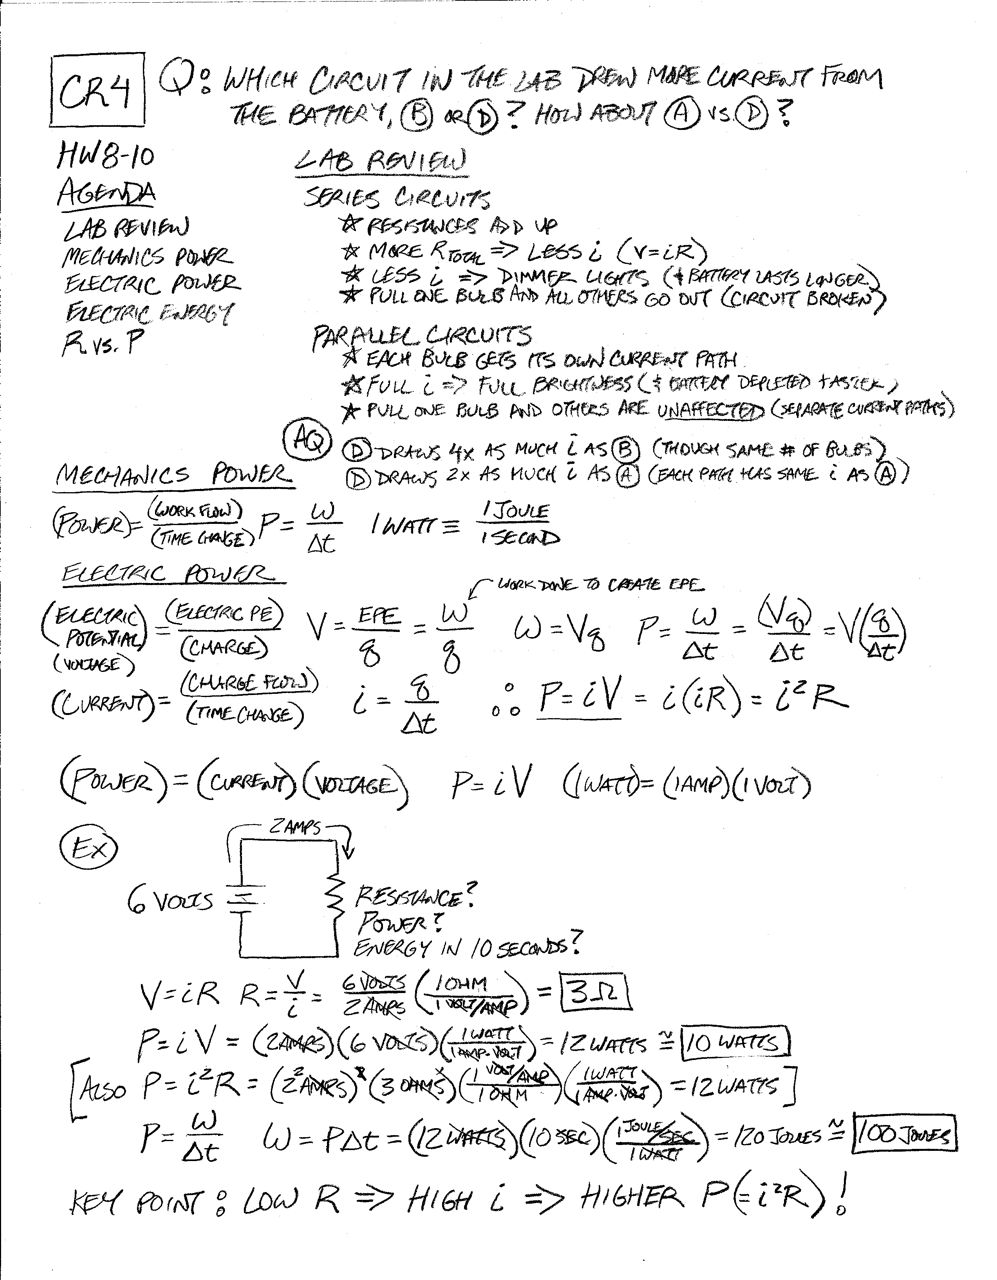 CR4
Q: WHICH CIRCUIT IN THE LAB DREW MORE CURRENT FROM
THE BATTERY, Ⓑ OR Ⓓ? HOW ABOUT Ⓐ VS Ⓓ?
HW8-10
AGENDA
LAB REVIEW
MECHANICS POWER
ELECTRIC POWER
ELECTRIC ENERGY
R VS. P
LAB REVIEW
SERIES CIRCUITS
☆ RESISTANCES ADD UP
☆ MORE R_TOTAL => LESS i (V=iR)
☆ LESS i => DIMMER LIGHTS (& BATTERY LASTS LONGER)
☆ PULL ONE BULB AND ALL OTHERS GO OUT (CIRCUIT BROKEN)
PARALLEL CIRCUITS
☆ EACH BULB GETS ITS OWN CURRENT PATH
☆ FULL i => FULL BRIGHTNESS (& BATTERY DEPLETED FASTER)
☆ PULL ONE BULB AND OTHERS ARE UNAFFECTED (SEPARATE CURRENT PATHS)
AQ
Ⓓ DRAWS 4X AS MUCH i AS Ⓑ (THOUGH SAME # OF BULBS)
Ⓓ DRAWS 2X AS MUCH i AS Ⓐ (EACH PATH HAS SAME i AS Ⓐ)
MECHANICS POWER
(POWER) = (WORK FLOW)/(TIME CHANGE) P = W/Δt 1 WATT ≡ 1 JOULE/1 SECOND
ELECTRIC POWER
WORK DONE TO CREATE EPE
(ELECTRIC POTENTIAL) (VOLTAGE) = (ELECTRIC PE)/(CHARGE) V = EPE/q = W/q W = Vq P = W/Δt = (Vq)/Δt = V(q/Δt)
(CURRENT) = (CHARGE FLOW)/(TIME CHANGE) i = q/Δt ∴ P = iV = i(iR) = i²R
(POWER) = (CURRENT)(VOLTAGE) P = iV (1 WATT) = (1 AMP)(1 VOLT)
EX
2 AMPS
6 VOLTS
RESISTANCE?
POWER?
ENERGY IN 10 SECONDS?
V = iR R = V/i = 6 VOLTS/2 AMPS (1 OHM/1 VOLT/AMP) = 3 Ω
P = iV = (2 AMPS)(6 VOLTS)(1 WATT/1 AMP·VOLT) = 12 WATTS ≅ 10 WATTS
[ALSO P = i²R = (2 AMPS)²(3 OHMS)(1 VOLT/AMP/1 OHM)(1 WATT/1 AMP·VOLT) = 12 WATTS]
P = W/Δt W = PΔt = (12 WATTS)(10 SEC)(1 JOULE/SEC/1 WATT) = 120 JOULES ≅ 100 JOULES
KEY POINT: LOW R => HIGH i => HIGHER P (= i²R)!